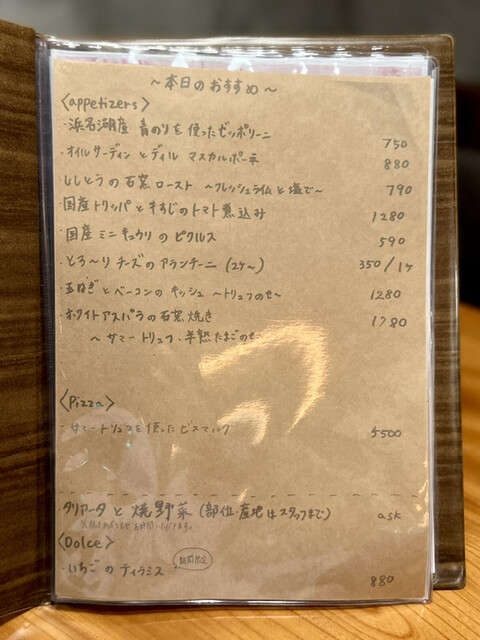 ～本日のおすすめ～
〈appetizers〉
・浜名湖産 青のりを使ったゼッポリーニ 750
・オイルサーディンとディル マスカルポーネ 880
ししとうの石窯ロースト ～フレッシュライムと塩で～ 790
国産トリッパと牛すじのトマト煮込み 1280
・国産ミニキュウリのピクルス 590
・とろ～りチーズのアランチーニ(2ケ～) 350/1ケ
・玉ねぎとベーコンのキッシュ ～トリュフのせ～ 1280
・ホワイトアスパラの石窯焼き 1780
～サマートリュフ・半熟たまごのせ
〈Pizza〉
・サマートリュフを使ったビスマルク 5500
タリアータと焼野菜(部位・産地はスタッフまで) ask
〈Dolce〉
・いちごのティラミス 期間限定 880